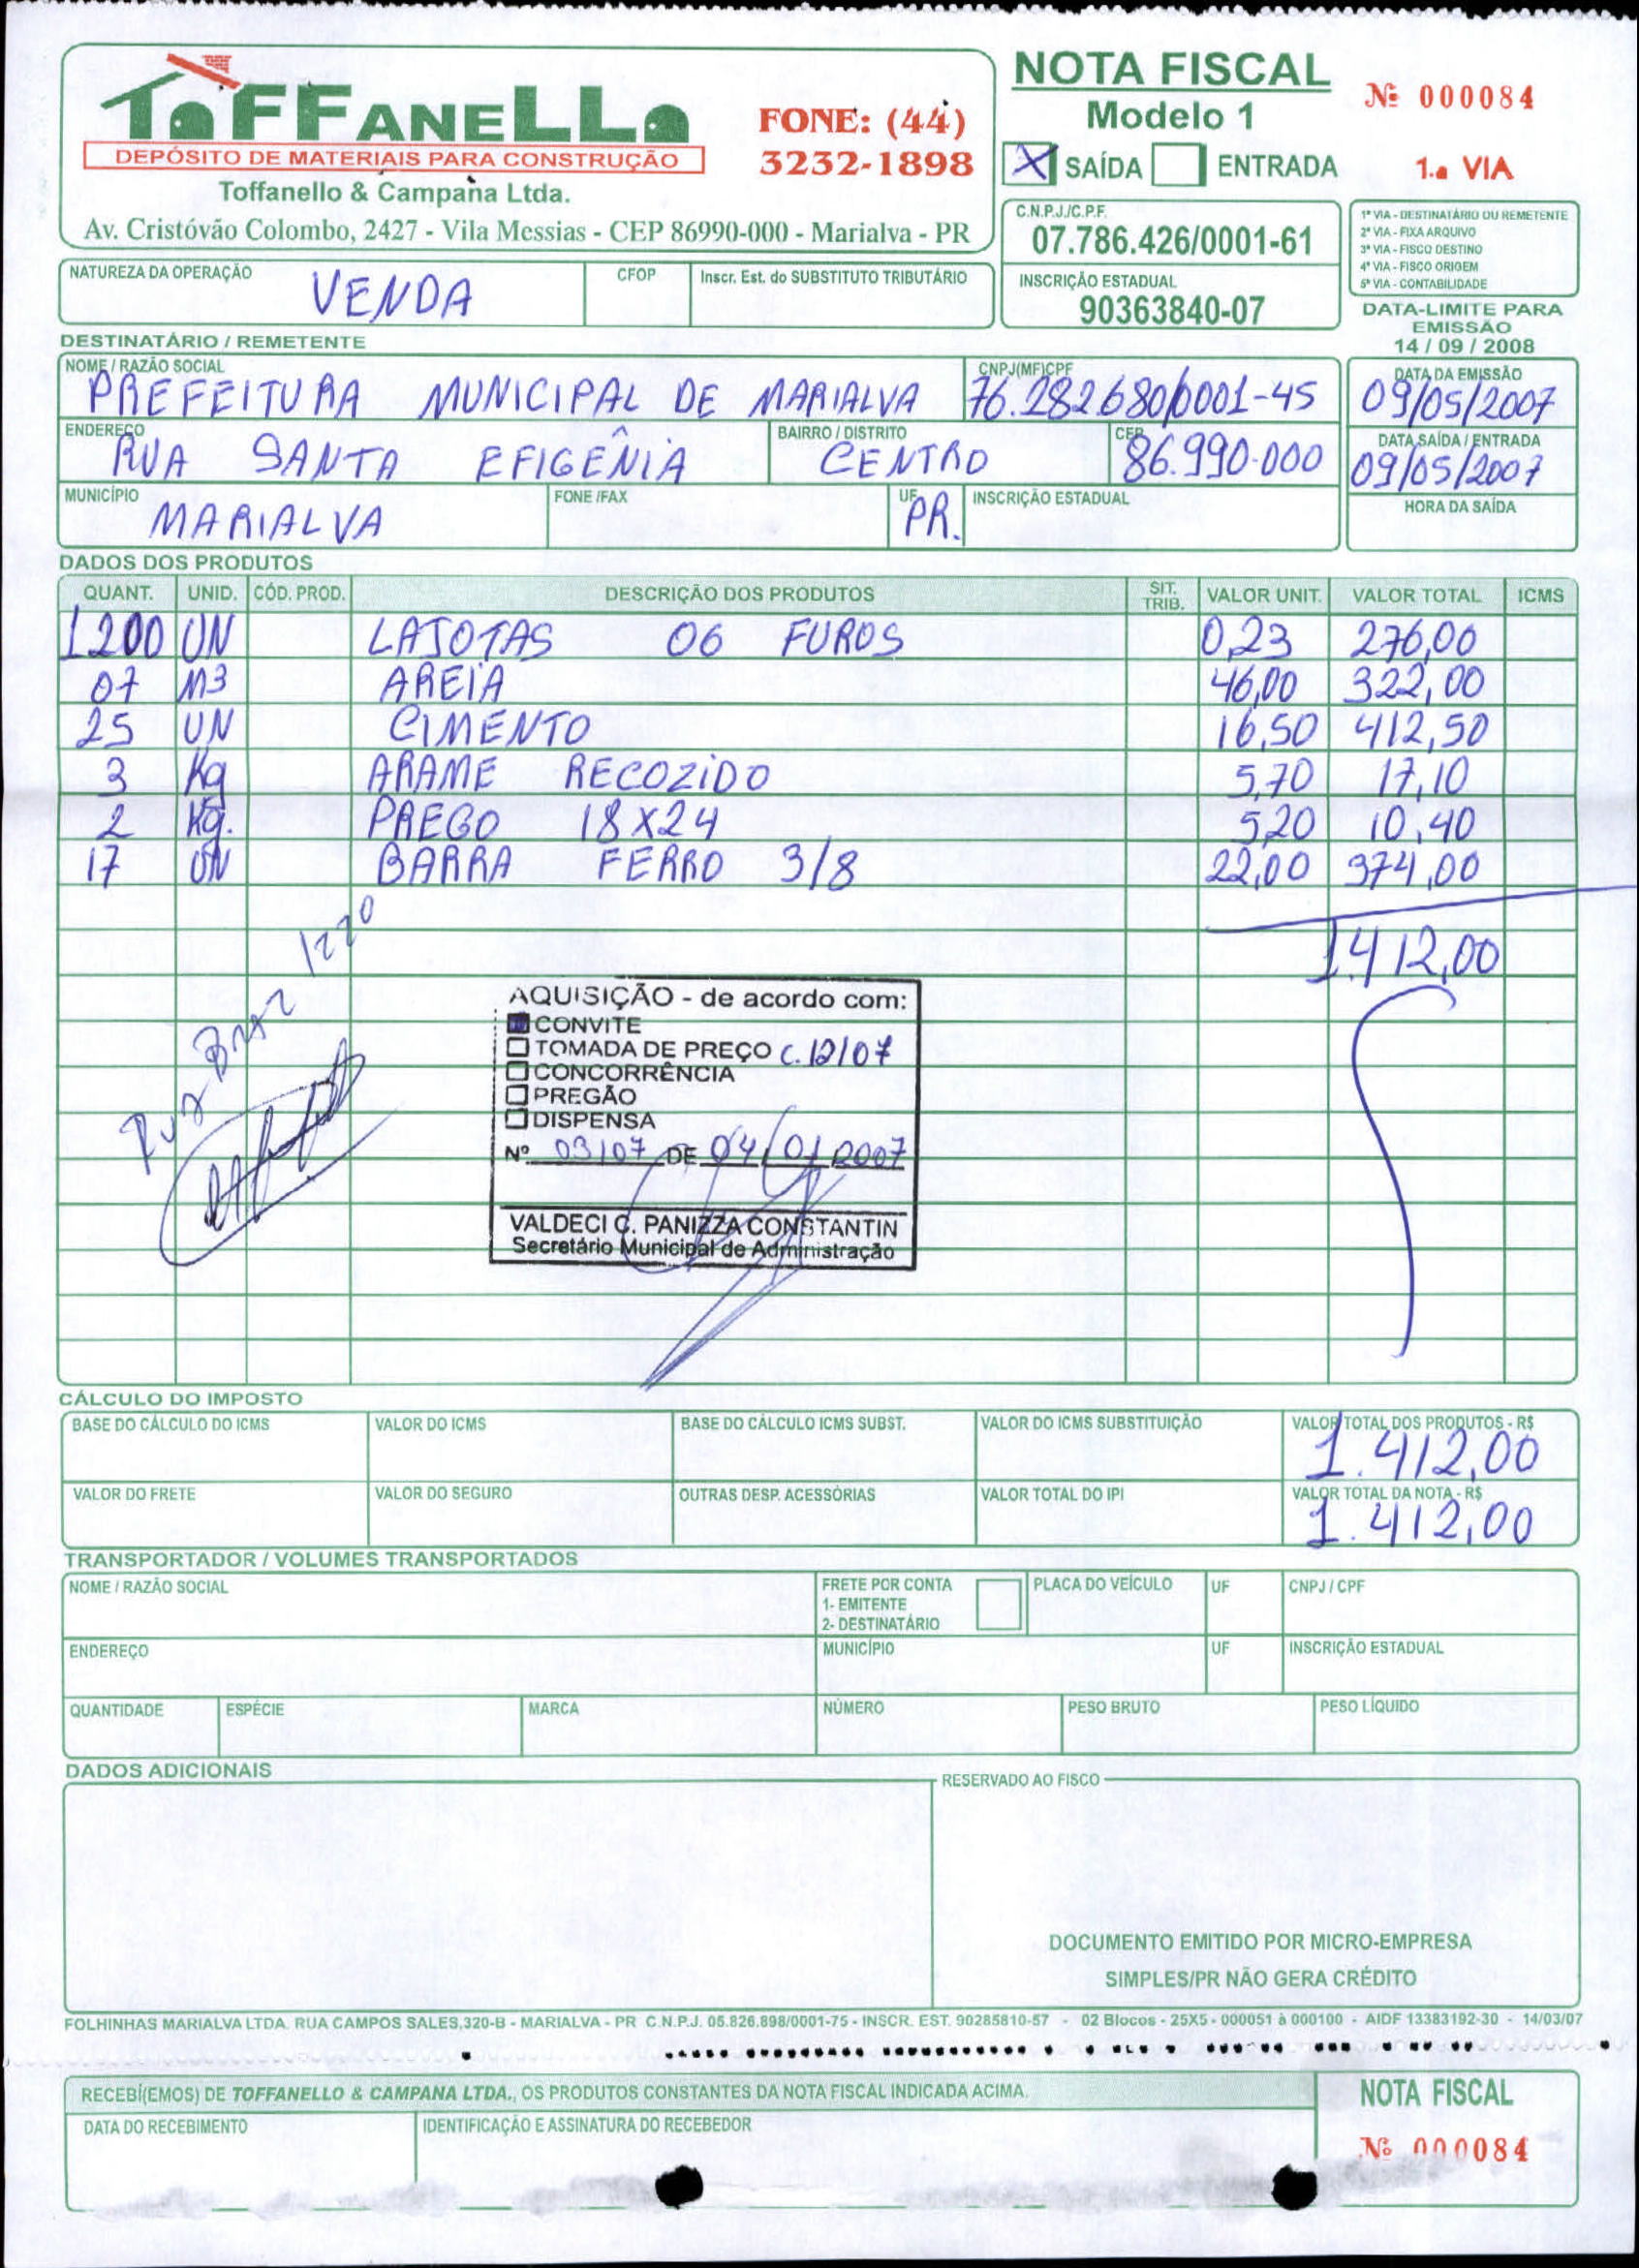 TOFFANELLO
DEPÓSITO DE MATERIAIS PARA CONSTRUÇÃO
Toffanello & Campana Ltda.
Av. Cristóvão Colombo, 2427 - Vila Messias - CEP 86990-000 - Marialva - PR
FONE: (44)
3232-1898
NOTA FISCAL
Modelo 1
X SAÍDA ENTRADA
Nº 000084
1.a VIA
C.N.P.J./C.P.F.
07.786.426/0001-61
INSCRIÇÃO ESTADUAL
90363840-07
1ª VIA - DESTINATÁRIO OU REMETENTE
2ª VIA - FIXA ARQUIVO
3ª VIA - FISCO DESTINO
4ª VIA - FISCO ORIGEM
5ª VIA - CONTABILIDADE
DATA-LIMITE PARA
EMISSÃO
14 / 09 / 2008
NATUREZA DA OPERAÇÃO CFOP Inscr. Est. do SUBSTITUTO TRIBUTÁRIO
VENDA
DESTINATÁRIO / REMETENTE
NOME / RAZÃO SOCIAL CNPJ(MF)CPF DATA DA EMISSÃO
PREFEITURA MUNICIPAL DE MARIALVA 76.282680/0001-45 09/05/2007
ENDEREÇO BAIRRO / DISTRITO CEP DATA SAÍDA / ENTRADA
RUA SANTA EFIGÊNIA CENTRO 86.990-000 09/05/2007
MUNICÍPIO FONE /FAX UF INSCRIÇÃO ESTADUAL HORA DA SAÍDA
MARIALVA PR.
DADOS DOS PRODUTOS
QUANT. UNID. CÓD. PROD. DESCRIÇÃO DOS PRODUTOS SIT. TRIB. VALOR UNIT. VALOR TOTAL ICMS
1200 UN LAJOTAS 06 FUROS 0,23 276,00
07 M3 AREIA 46,00 322,00
25 UN CIMENTO 16,50 412,50
3 Kg ARAME RECOZIDO 5,70 17,10
2 Kg. PREGO 18X24 5,20 10,40
17 UN BARRA FERRO 3/8 22,00 374,00
1.412,00
AQUISIÇÃO - de acordo com:
CONVITE
TOMADA DE PREÇO C. 12/07
CONCORRÊNCIA
PREGÃO
DISPENSA
Nº 03107 DE 04/01/2007
VALDECI C. PANIZZA CONSTANTIN
Secretário Municipal de Administração
CÁLCULO DO IMPOSTO
BASE DO CÁLCULO DO ICMS VALOR DO ICMS BASE DO CÁLCULO ICMS SUBST. VALOR DO ICMS SUBSTITUIÇÃO VALOR TOTAL DOS PRODUTOS - R$
1.412,00
VALOR DO FRETE VALOR DO SEGURO OUTRAS DESP. ACESSÓRIAS VALOR TOTAL DO IPI VALOR TOTAL DA NOTA - R$
1.412,00
TRANSPORTADOR / VOLUMES TRANSPORTADOS
NOME / RAZÃO SOCIAL FRETE POR CONTA PLACA DO VEÍCULO UF CNPJ / CPF
1- EMITENTE
2- DESTINATÁRIO
ENDEREÇO MUNICÍPIO UF INSCRIÇÃO ESTADUAL
QUANTIDADE ESPÉCIE MARCA NÚMERO PESO BRUTO PESO LÍQUIDO
DADOS ADICIONAIS
RESERVADO AO FISCO
DOCUMENTO EMITIDO POR MICRO-EMPRESA
SIMPLES/PR NÃO GERA CRÉDITO
FOLHINHAS MARIALVA LTDA. RUA CAMPOS SALES,320-B - MARIALVA - PR C.N.P.J. 05.826.898/0001-75 - INSCR. EST. 90285810-57 - 02 Blocos - 25X5 - 000051 à 000100 - AIDF 13383192-30 - 14/03/07
RECEBI(EMOS) DE TOFFANELLO & CAMPANA LTDA., OS PRODUTOS CONSTANTES DA NOTA FISCAL INDICADA ACIMA.
DATA DO RECEBIMENTO IDENTIFICAÇÃO E ASSINATURA DO RECEBEDOR
NOTA FISCAL
Nº 000084